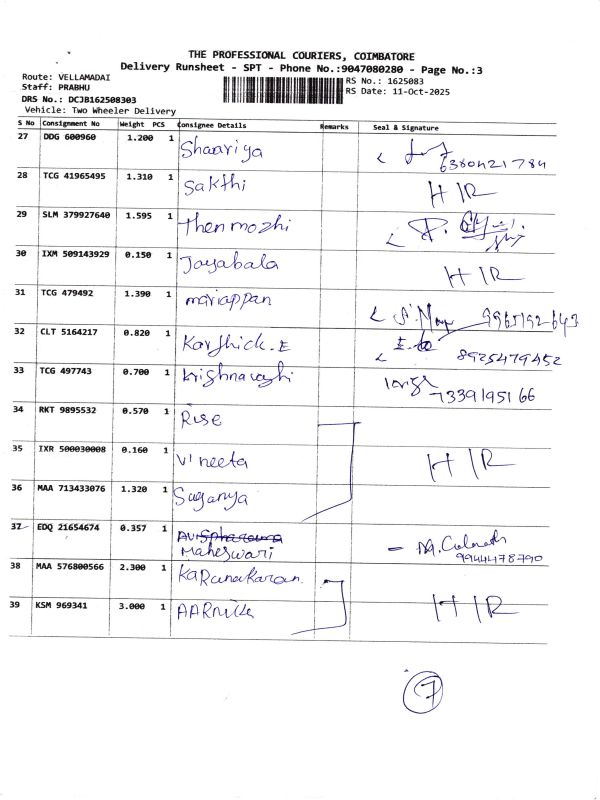 THE PROFESSIONAL COURIERS, COIMBATORE
Delivery Runsheet - SPT - Phone No.:9047080280 - Page No.:3
Route: VELLAMADAI
RS No.: 1625083
Staff: PRABHU
RS Date: 11-Oct-2025
DRS No.: DCJB162508303
Vehicle: Two Wheeler Delivery
S No Consignment No Weight PCS Consignee Details Remarks Seal & Signature
27 DDG 600960 1.200 1 Shaariya 6380421784
28 TCG 41965495 1.310 1 Sakthi H/R
29 SLM 379927640 1.595 1 Thenmozhi
30 IXM 509143929 0.150 1 Jayabala H/R
31 TCG 479492 1.390 1 mariappan 9965192643
32 CLT 5164217 0.820 1 Karthick.E 8925479452
33 TCG 497743 0.700 1 7339195166
34 RKT 9895532 0.570 1 Rise
35 IXR 500030008 0.160 1 Vineeta H/R
36 MAA 713433076 1.320 1 Suganya
37 EDQ 21654674 0.357 1
Maheswari 9944478790
38 MAA 576800566 2.300 1 Karunakaran
39 KSM 969341 3.000 1 H/R
7